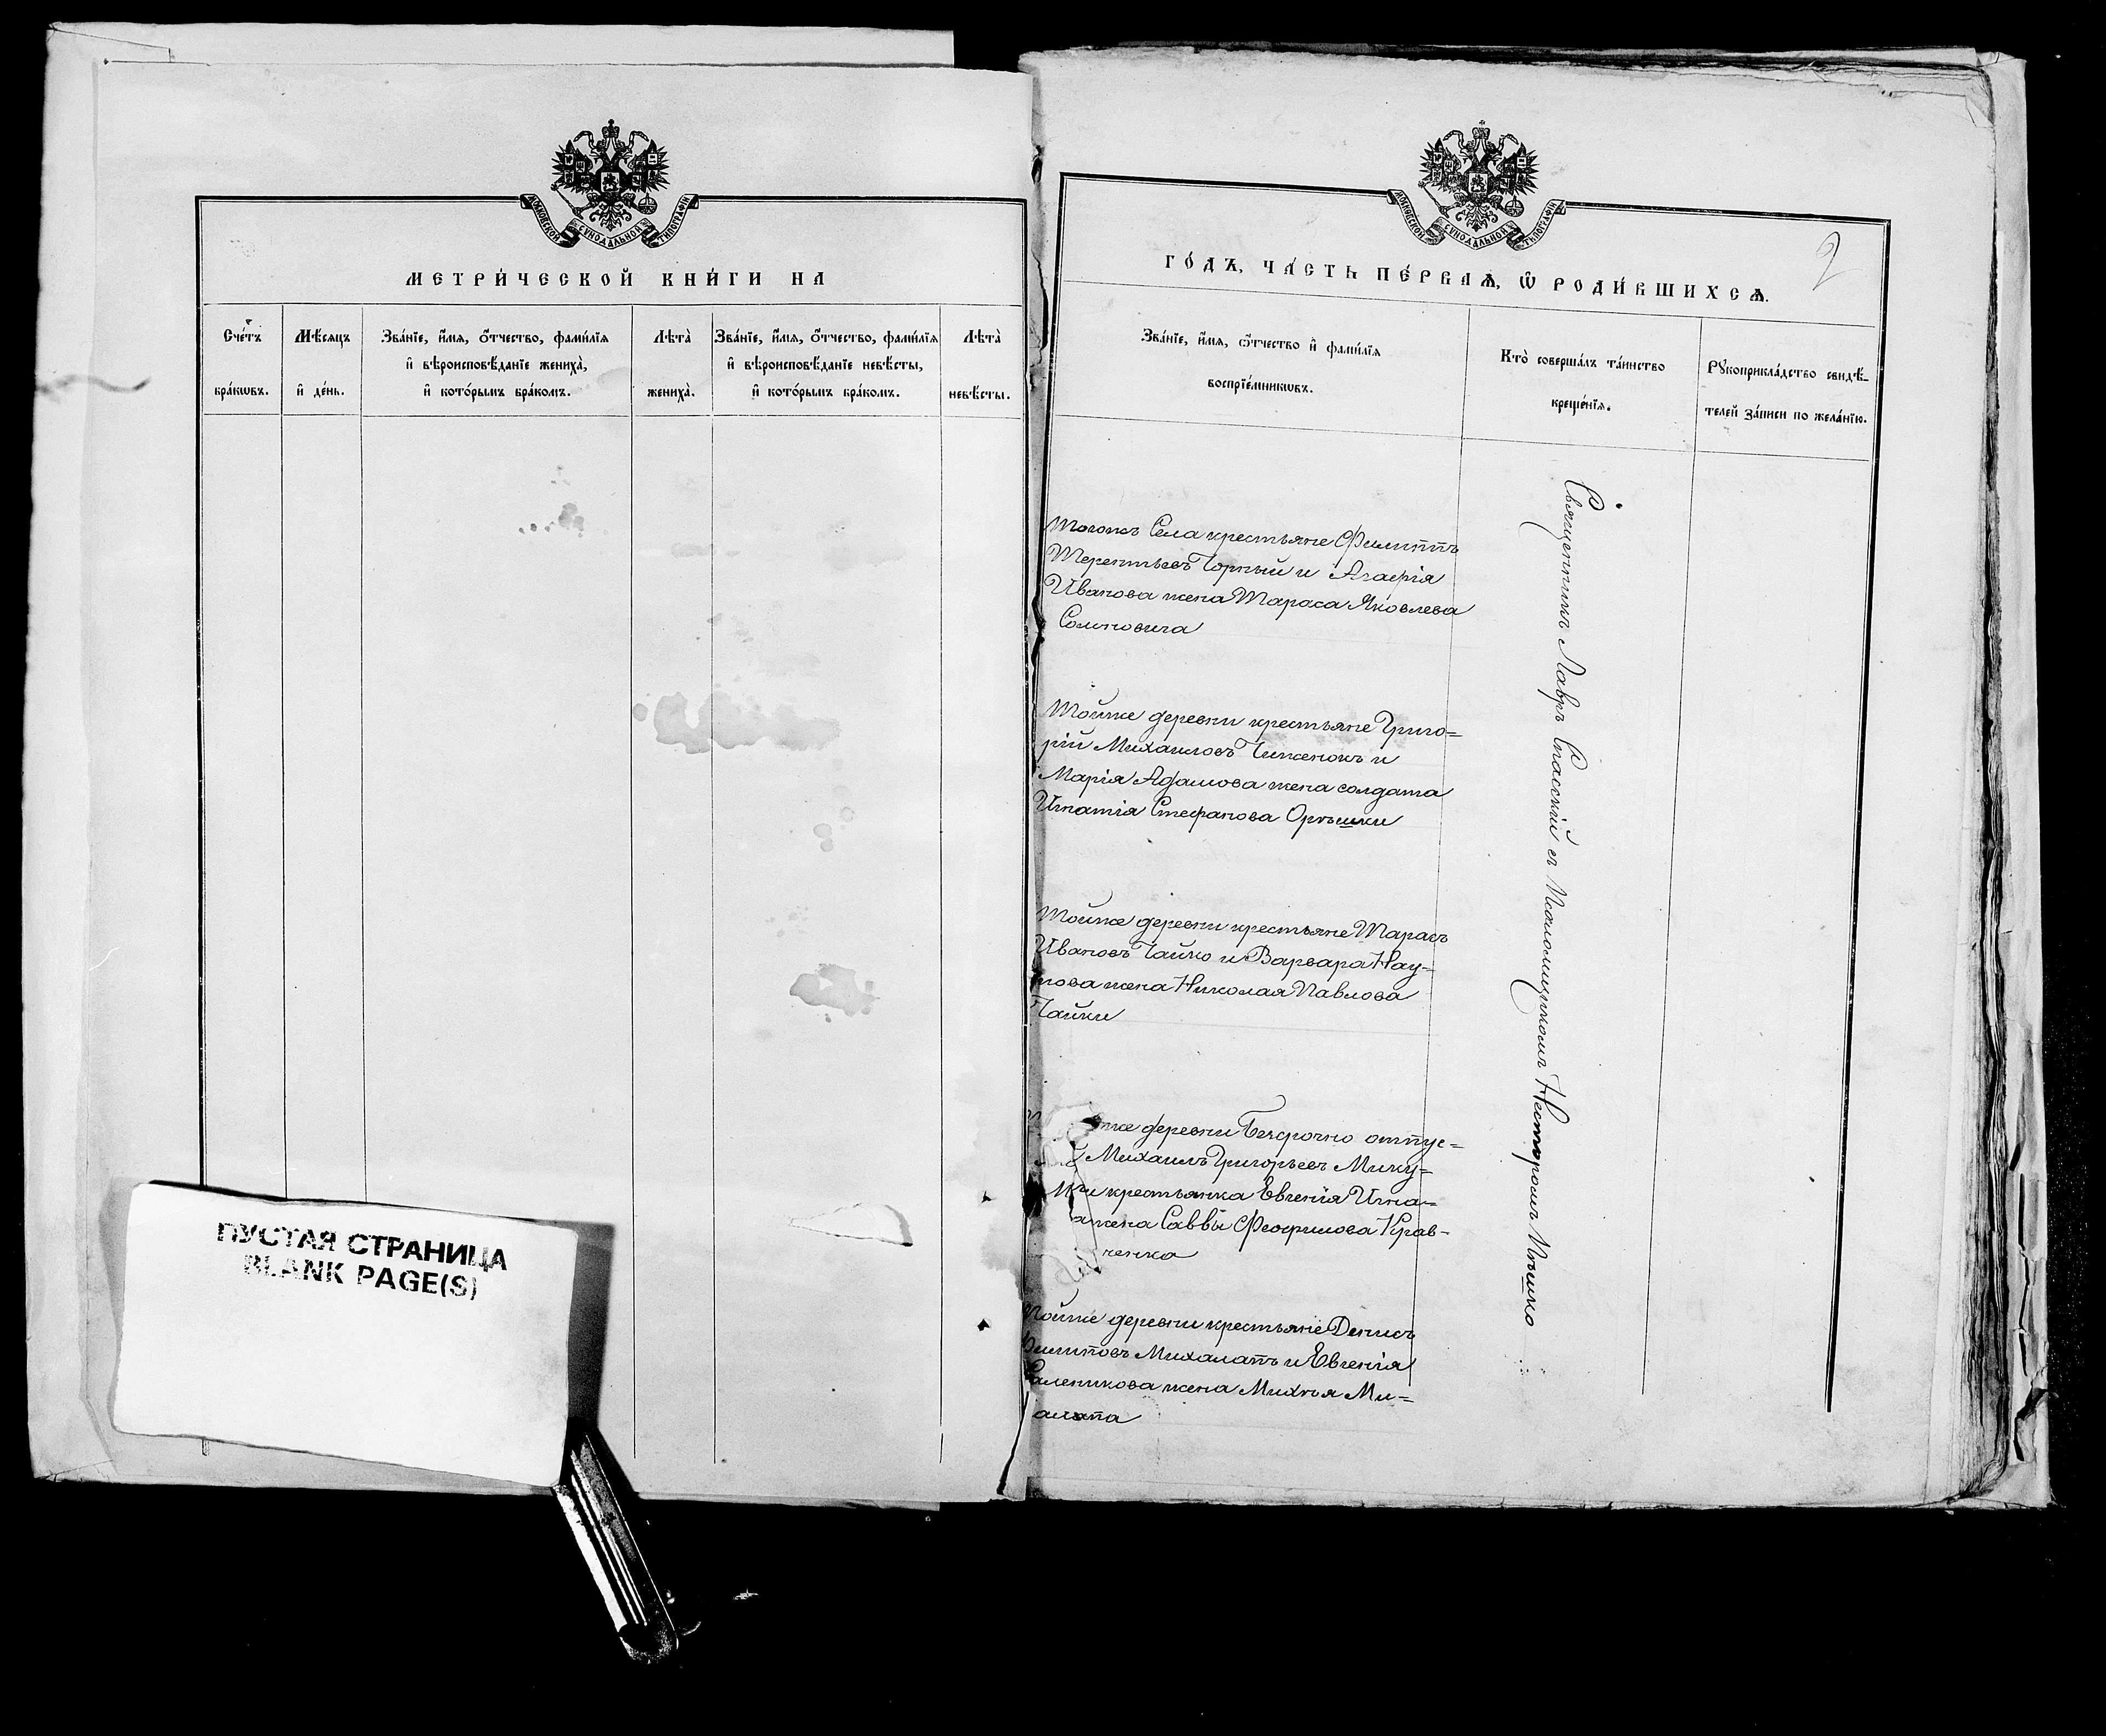 МОСКОВСКОЙ СѴНОДАЛЬНОЙ ТИПОГРАФІИ
МЕТРИ́ЧЕСКОЙ КНИ́ГИ НА
Сче́тъ
бра́кѡвъ.
Мѣ́сяцъ
и҆ де́нь.
Зва́нїе, и҆́мя, ѻ҆́тчество, фамі́лїя
и҆ вѣроисповѣ́данїе жениха̀,
и҆ кото́рымъ бра́комъ.
Лѣ́та̀
жениха̀.
Зва́нїе, и҆́мя, ѻ҆́тчество, фамі́лїя
и҆ вѣроисповѣ́данїе невѣ́сты,
и҆ кото́рымъ бра́комъ.
Лѣ́та̀
невѣ́сты.
ПУСТАЯ СТРАНИЦА
BLANK PAGE(S)
МОСКОВСКОЙ СѴНОДАЛЬНОЙ ТИПОГРАФІИ
2
ГО́ДЪ, ЧА́СТЬ ПЕ́РВАѦ, Ѽ РОДИ́ВШИХСѦ.
Зва́нїе, и҆́мя, ѻ҆́тчество и҆ фамі́лїя
воспрїе́мникѡвъ.
Кто̀ соверша́лъ та́инство
креще́нїя.
Рꙋкоприкла́дство свидѣ́-
телей за́писи по жела́нїю.
Тогожъ Села крестьяне Филиппъ
Терентьевъ Чорный и Агафія
Иванова жена Тараса Яковлева
Тойже деревни крестьяне Григо=
рій Михаиловъ Чиженокъ и
Марія Адамова жена солдата
Игнатія Стефанова Орѣшки
Тойже деревни крестьяне Тарасъ
Ивановъ Чайко и Варвара Нау=
мова жена Николая Павлова
Чайки
же деревни Безсрочно отпус=
Михаилъ Григорьевъ Мику=
и крестьянка Евгенія Игна=
жена Саввы Феофилова Крав=
ченка
Тойже деревни крестьяне Денисъ
Филиповъ Михалапъ и Евгенія
жена Михѣя Ми=
алапа
Священникъ Лавръ Спаскій съ Псаломщикомъ Несторомъ Пѣшко